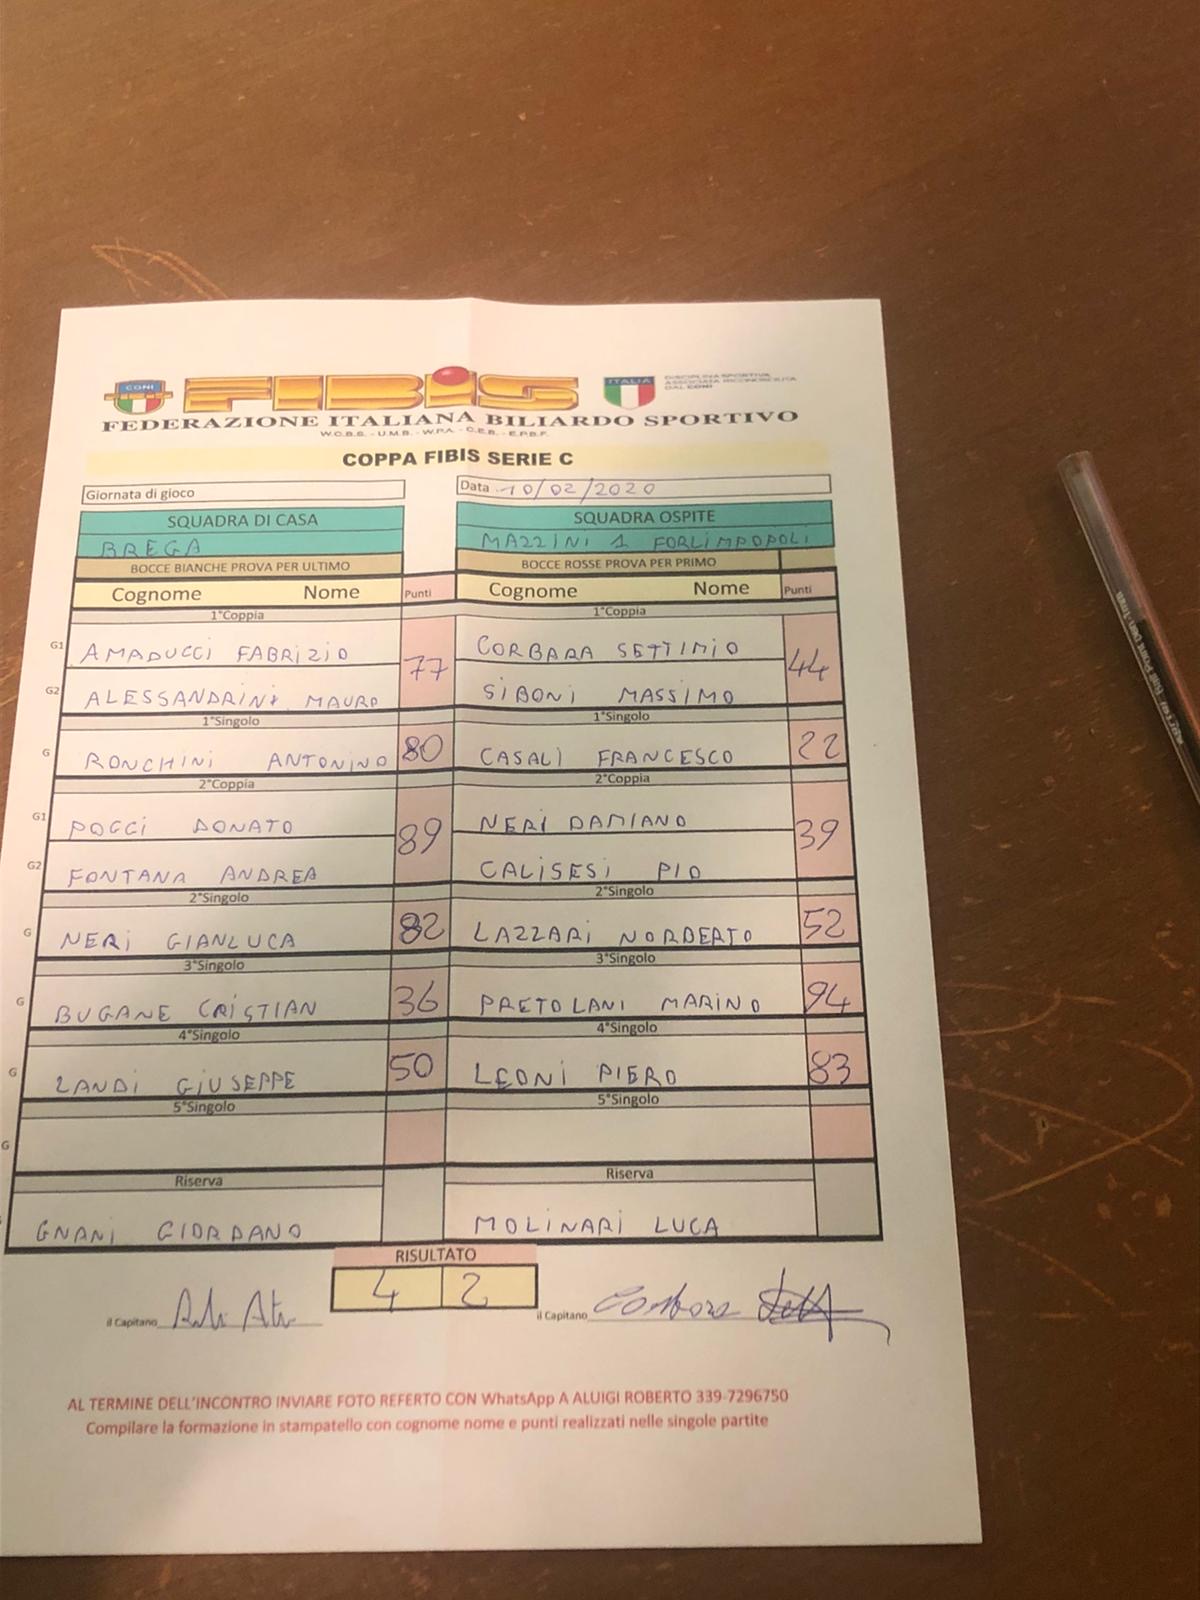 CONI FIBiS ITALIA DISCIPLINA SPORTIVA
ASSOCIATA RICONOSCIUTA
DAL CONI
FEDERAZIONE ITALIANA BILIARDO SPORTIVO
W.C.B.S. - U.M.B. - W.P.A. - C.E.B. - E.P.B.F.
COPPA FIBIS SERIE C
Giornata di gioco Data 10/02/2020
SQUADRA DI CASA SQUADRA OSPITE
BREGA MAZZINI 1 FORLIMPOPOLI
BOCCE BIANCHE PROVA PER ULTIMO BOCCE ROSSE PROVA PER PRIMO
Cognome Nome Punti Cognome Nome Punti
1°Coppia 1°Coppia
G1 AMADUCCI FABRIZIO 77 CORBARA SETTIMIO 44
G2 ALESSANDRINI MAURO SIBONI MASSIMO
1°Singolo 1°Singolo
G RONCHINI ANTONINO 80 CASALI FRANCESCO 22
2°Coppia 2°Coppia
G1 POGGI DONATO 89 NERI DAMIANO 39
G2 FONTANA ANDREA CALISESI PIO
2°Singolo 2°Singolo
G NERI GIANLUCA 82 LAZZARI NORBERTO 52
3°Singolo 3°Singolo
G BUGANE CRISTIAN 36 PRETOLANI MARINO 94
4°Singolo 4°Singolo
G LANDI GIUSEPPE 50 LEONI PIERO 83
5°Singolo 5°Singolo
G
Riserva Riserva
GNANI GIORDANO MOLINARI LUCA
RISULTATO
4 2
il Capitano il Capitano Corbara
AL TERMINE DELL'INCONTRO INVIARE FOTO REFERTO CON WhatsApp A ALUIGI ROBERTO 339-7296750
Compilare la formazione in stampatello con cognome nome e punti realizzati nelle singole partite